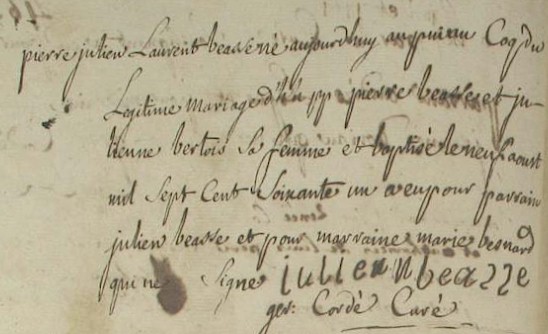 pierre julien Laurent beasse né aujourdhuy au Coq du
Legitime mariage d'h h pp pierre beasse et ju-
lienne bertois sa femme et baptisé le neuf aoust
mil sept Cent Soixante un a eu pour parrain
julien beasse et pour marraine marie besnard
qui ne Signe julien beazze
ger: Cordé Curé